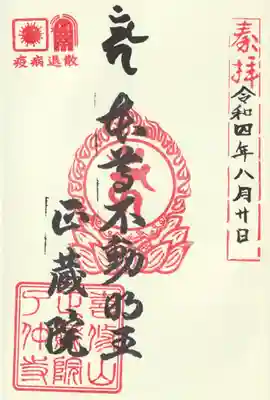 奉拝
令和四年八月廿日
本尊不動明王
正蔵院
疫病退散
喜修山
正蔵院
了仲寺